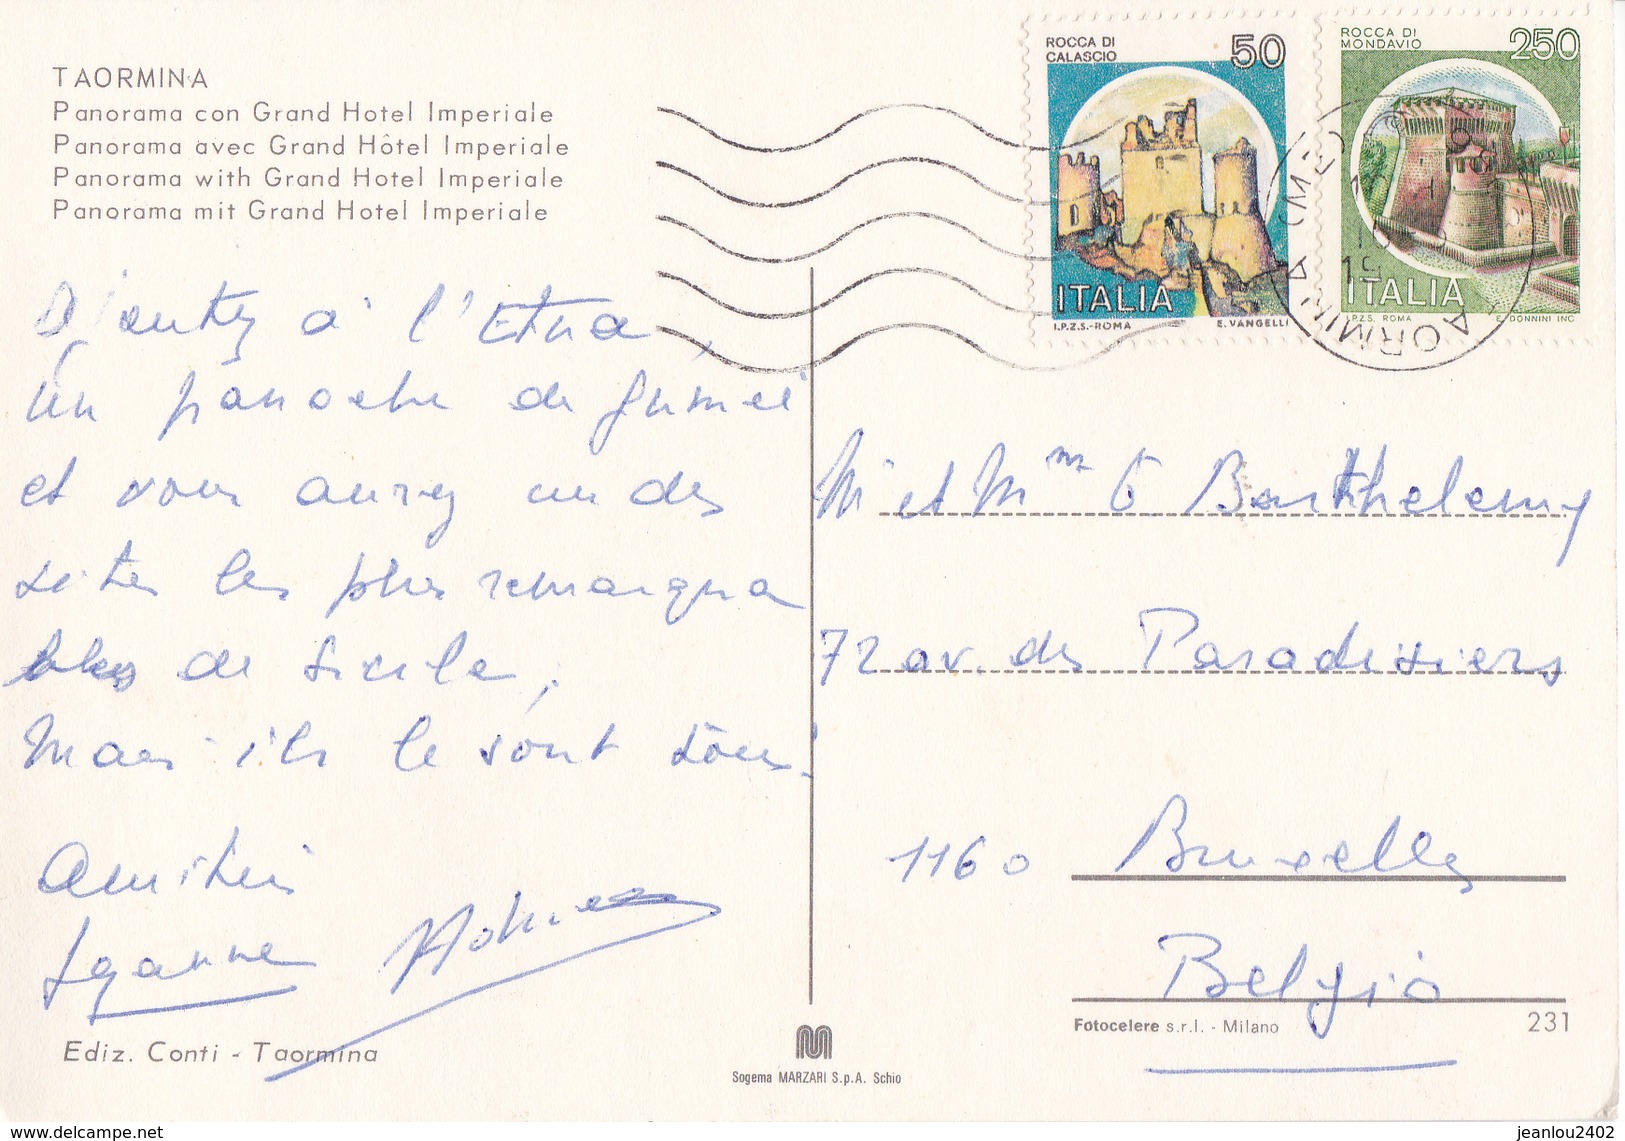 TAORMINA
Panorama con Grand Hotel Imperiale
Panorama avec Grand Hôtel Imperiale
Panorama with Grand Hotel Imperiale
Panorama mit Grand Hotel Imperiale
ROCCA DI
CALASCIO
50
ITALIA
I.P.Z.S.-ROMA E. VANGELLI
ROCCA DI
MONDAVIO
250
ITALIA
I.P.Z.S. ROMA E. DONNINI INC
TAORMINA
à l'Etna,
un panache de fumée
et vous aurez un des
sites les plus remarqua
bles de Sicile,
Mais ils le sont tous!
Amitiés
Jeanne
M et Mme G Barthelemy
72 av. des Paradisiers
1160 Bruxelles
Belgio
Ediz. Conti - Taormina
Sogema MARZARI S.p.A. Schio
Fotocelere s.r.l. - Milano
231
jeanlou2402